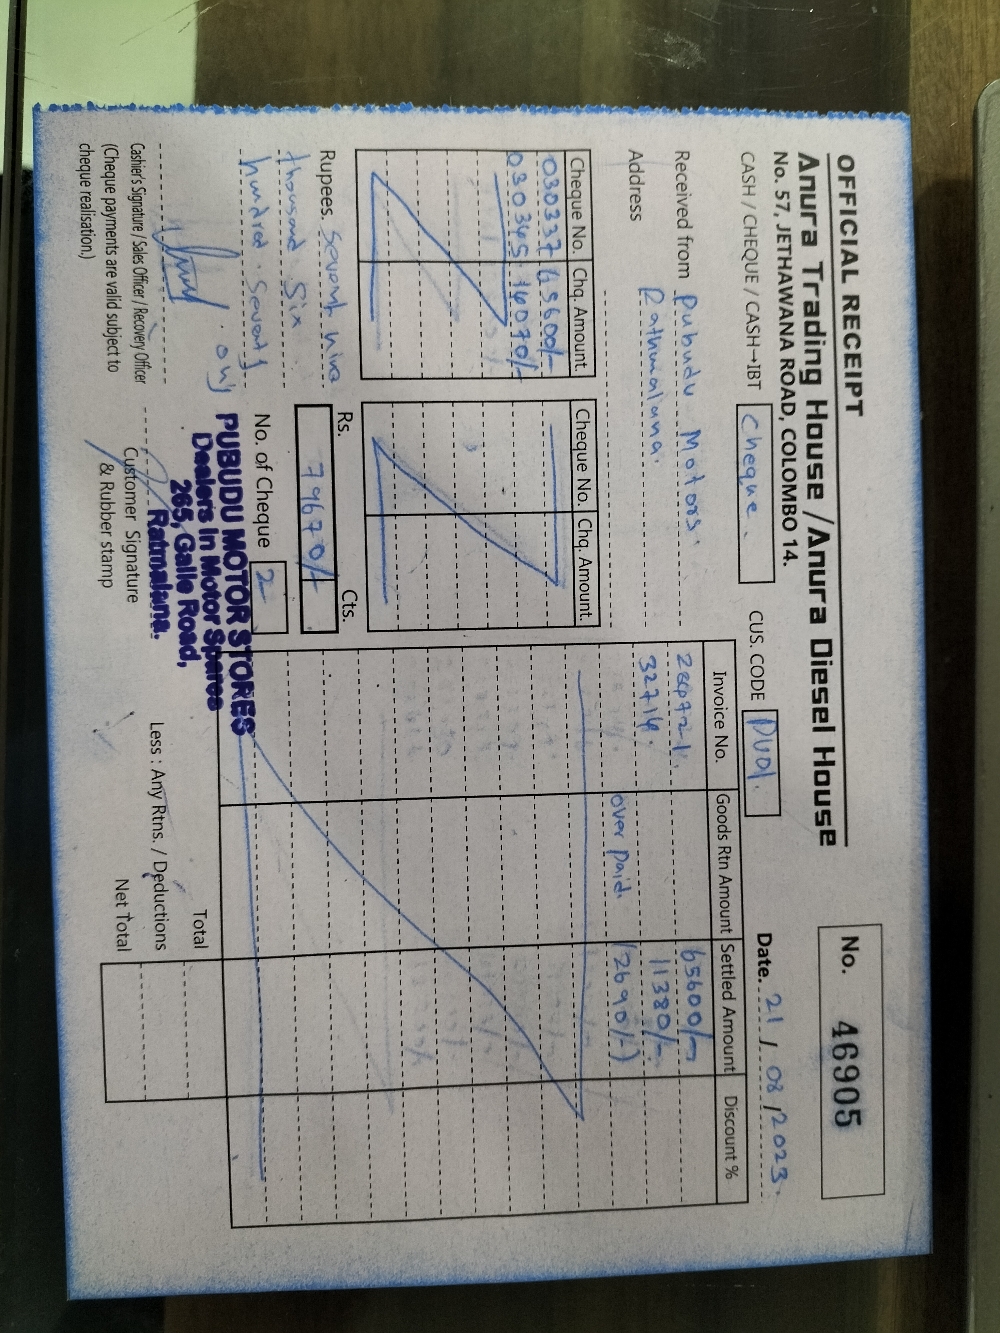 OFFICIAL RECEIPT
Anura Trading House / Anura Diesel House
No. 57, JETHAWANA ROAD, COLOMBO 14.
No. 46905
CASH / CHEQUE / CASH→IBT cheque.
CUS. CODE PU01.
Date. 21 / 08 / 2023.
Received from Pubudu Motors.
Address Rathmalana.
Cheque No. Chq. Amount.
030337 65600/-
030345 14070/-
Cheque No. Chq. Amount.
Invoice No. Goods Rtn Amount Settled Amount Discount %
65600/-
32714. 11380/-
over paid. (2690/-)
Rupees. Sevent nine
thousand Six
hundred. Seventy
. only
Rs. Cts.
79670/-
No. of Cheque 2
Total
Less : Any Rtns. / Deductions
Net Total
PUBUDU MOTOR STORES
Dealers in Motor Spares
265, Galle Road,
Ratmalana.
Cashier's Signature / Sales Officer / Recovery Officer
(Cheque payments are valid subject to
cheque realisation.)
Customer Signature
& Rubber stamp